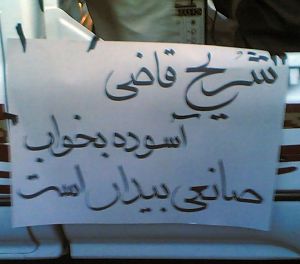 شریح قاضی
آسوده بخواب
صانعی بیدار است